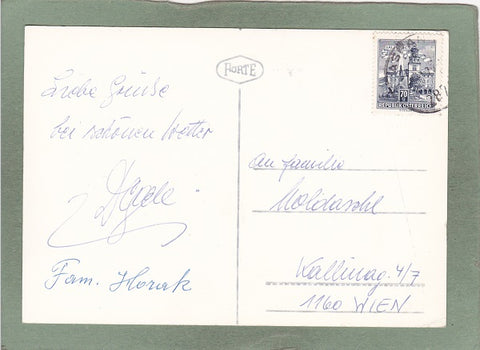 Liebe Grüße
bei schönen Wetter
Fam. Horak
PORTE
70
REPUBLIK ÖSTERREICH
An Familie
Moldaschl
Kallinag. 4/7
1160 WIEN